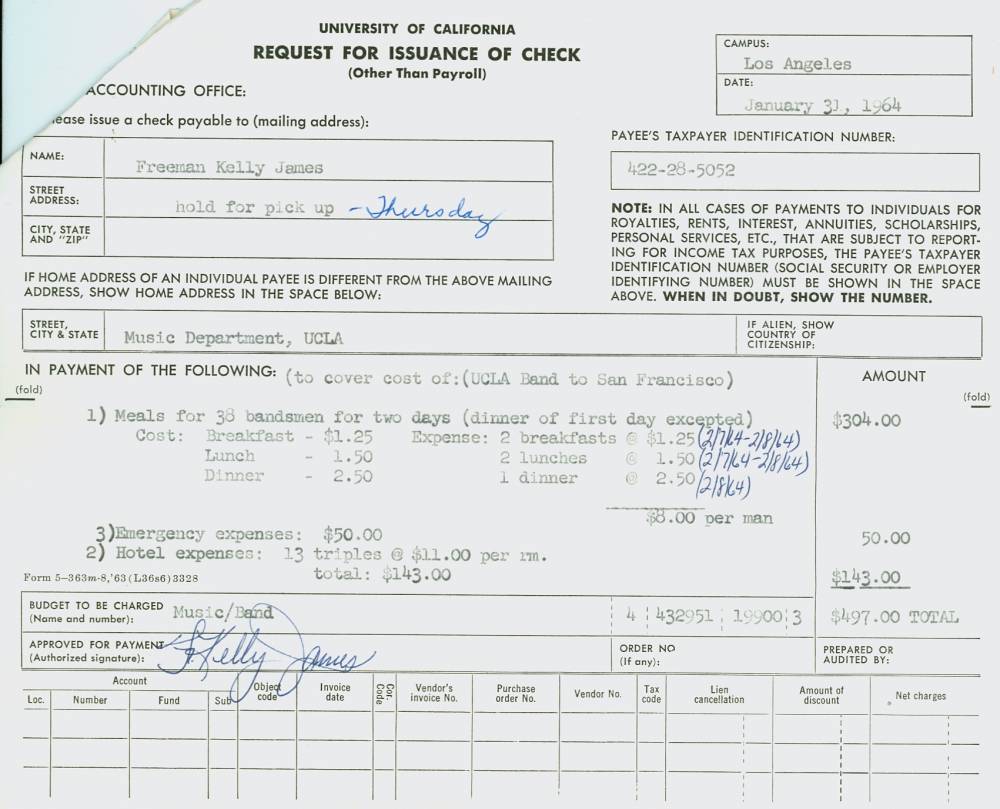 UNIVERSITY OF CALIFORNIA
REQUEST FOR ISSUANCE OF CHECK
(Other Than Payroll)
CAMPUS:
Los Angeles
DATE:
January 31, 1964
ACCOUNTING OFFICE:
ease issue a check payable to (mailing address):
NAME:
Freeman Kelly James
STREET ADDRESS:
hold for pick up - Thursday
CITY, STATE AND "ZIP"
PAYEE'S TAXPAYER IDENTIFICATION NUMBER:
422-28-5052
NOTE: IN ALL CASES OF PAYMENTS TO INDIVIDUALS FOR
ROYALTIES, RENTS, INTEREST, ANNUITIES, SCHOLARSHIPS,
PERSONAL SERVICES, ETC., THAT ARE SUBJECT TO REPORT-
ING FOR INCOME TAX PURPOSES, THE PAYEE'S TAXPAYER
IDENTIFICATION NUMBER (SOCIAL SECURITY OR EMPLOYER
IDENTIFYING NUMBER) MUST BE SHOWN IN THE SPACE
ABOVE. WHEN IN DOUBT, SHOW THE NUMBER.
IF HOME ADDRESS OF AN INDIVIDUAL PAYEE IS DIFFERENT FROM THE ABOVE MAILING
ADDRESS, SHOW HOME ADDRESS IN THE SPACE BELOW:
STREET, CITY & STATE
Music Department, UCLA
IF ALIEN, SHOW COUNTRY OF CITIZENSHIP:
IN PAYMENT OF THE FOLLOWING: (to cover cost of:(UCLA Band to San Francisco)
AMOUNT
(fold)
(fold)
1) Meals for 38 bandsmen for two days (dinner of first day excepted) $304.00
Cost: Breakfast - $1.25 Expense: 2 breakfasts @ $1.25 (2/7/64-2/8/64)
Lunch - 1.50 2 lunches @ 1.50 (2/7/64-2/8/64)
Dinner - 2.50 1 dinner @ 2.50 (2/8/64)
$8.00 per man
3) Emergency expenses: $50.00 50.00
2) Hotel expenses: 13 triples @ $11.00 per rm.
Form 5-363m-8,'63(L36s6)3328 total: $143.00 $143.00
BUDGET TO BE CHARGED
(Name and number):
Music/Band 4 432951 19900 3 $497.00 TOTAL
APPROVED FOR PAYMENT
(Authorized signature):
F. Kelly James
ORDER NO
(If any):
PREPARED OR
AUDITED BY:
Account
Loc. Number Fund Sub Object code Invoice date Cor. Code Vendor's invoice No. Purchase order No. Vendor No. Tax code Lien cancellation Amount of discount Net charges